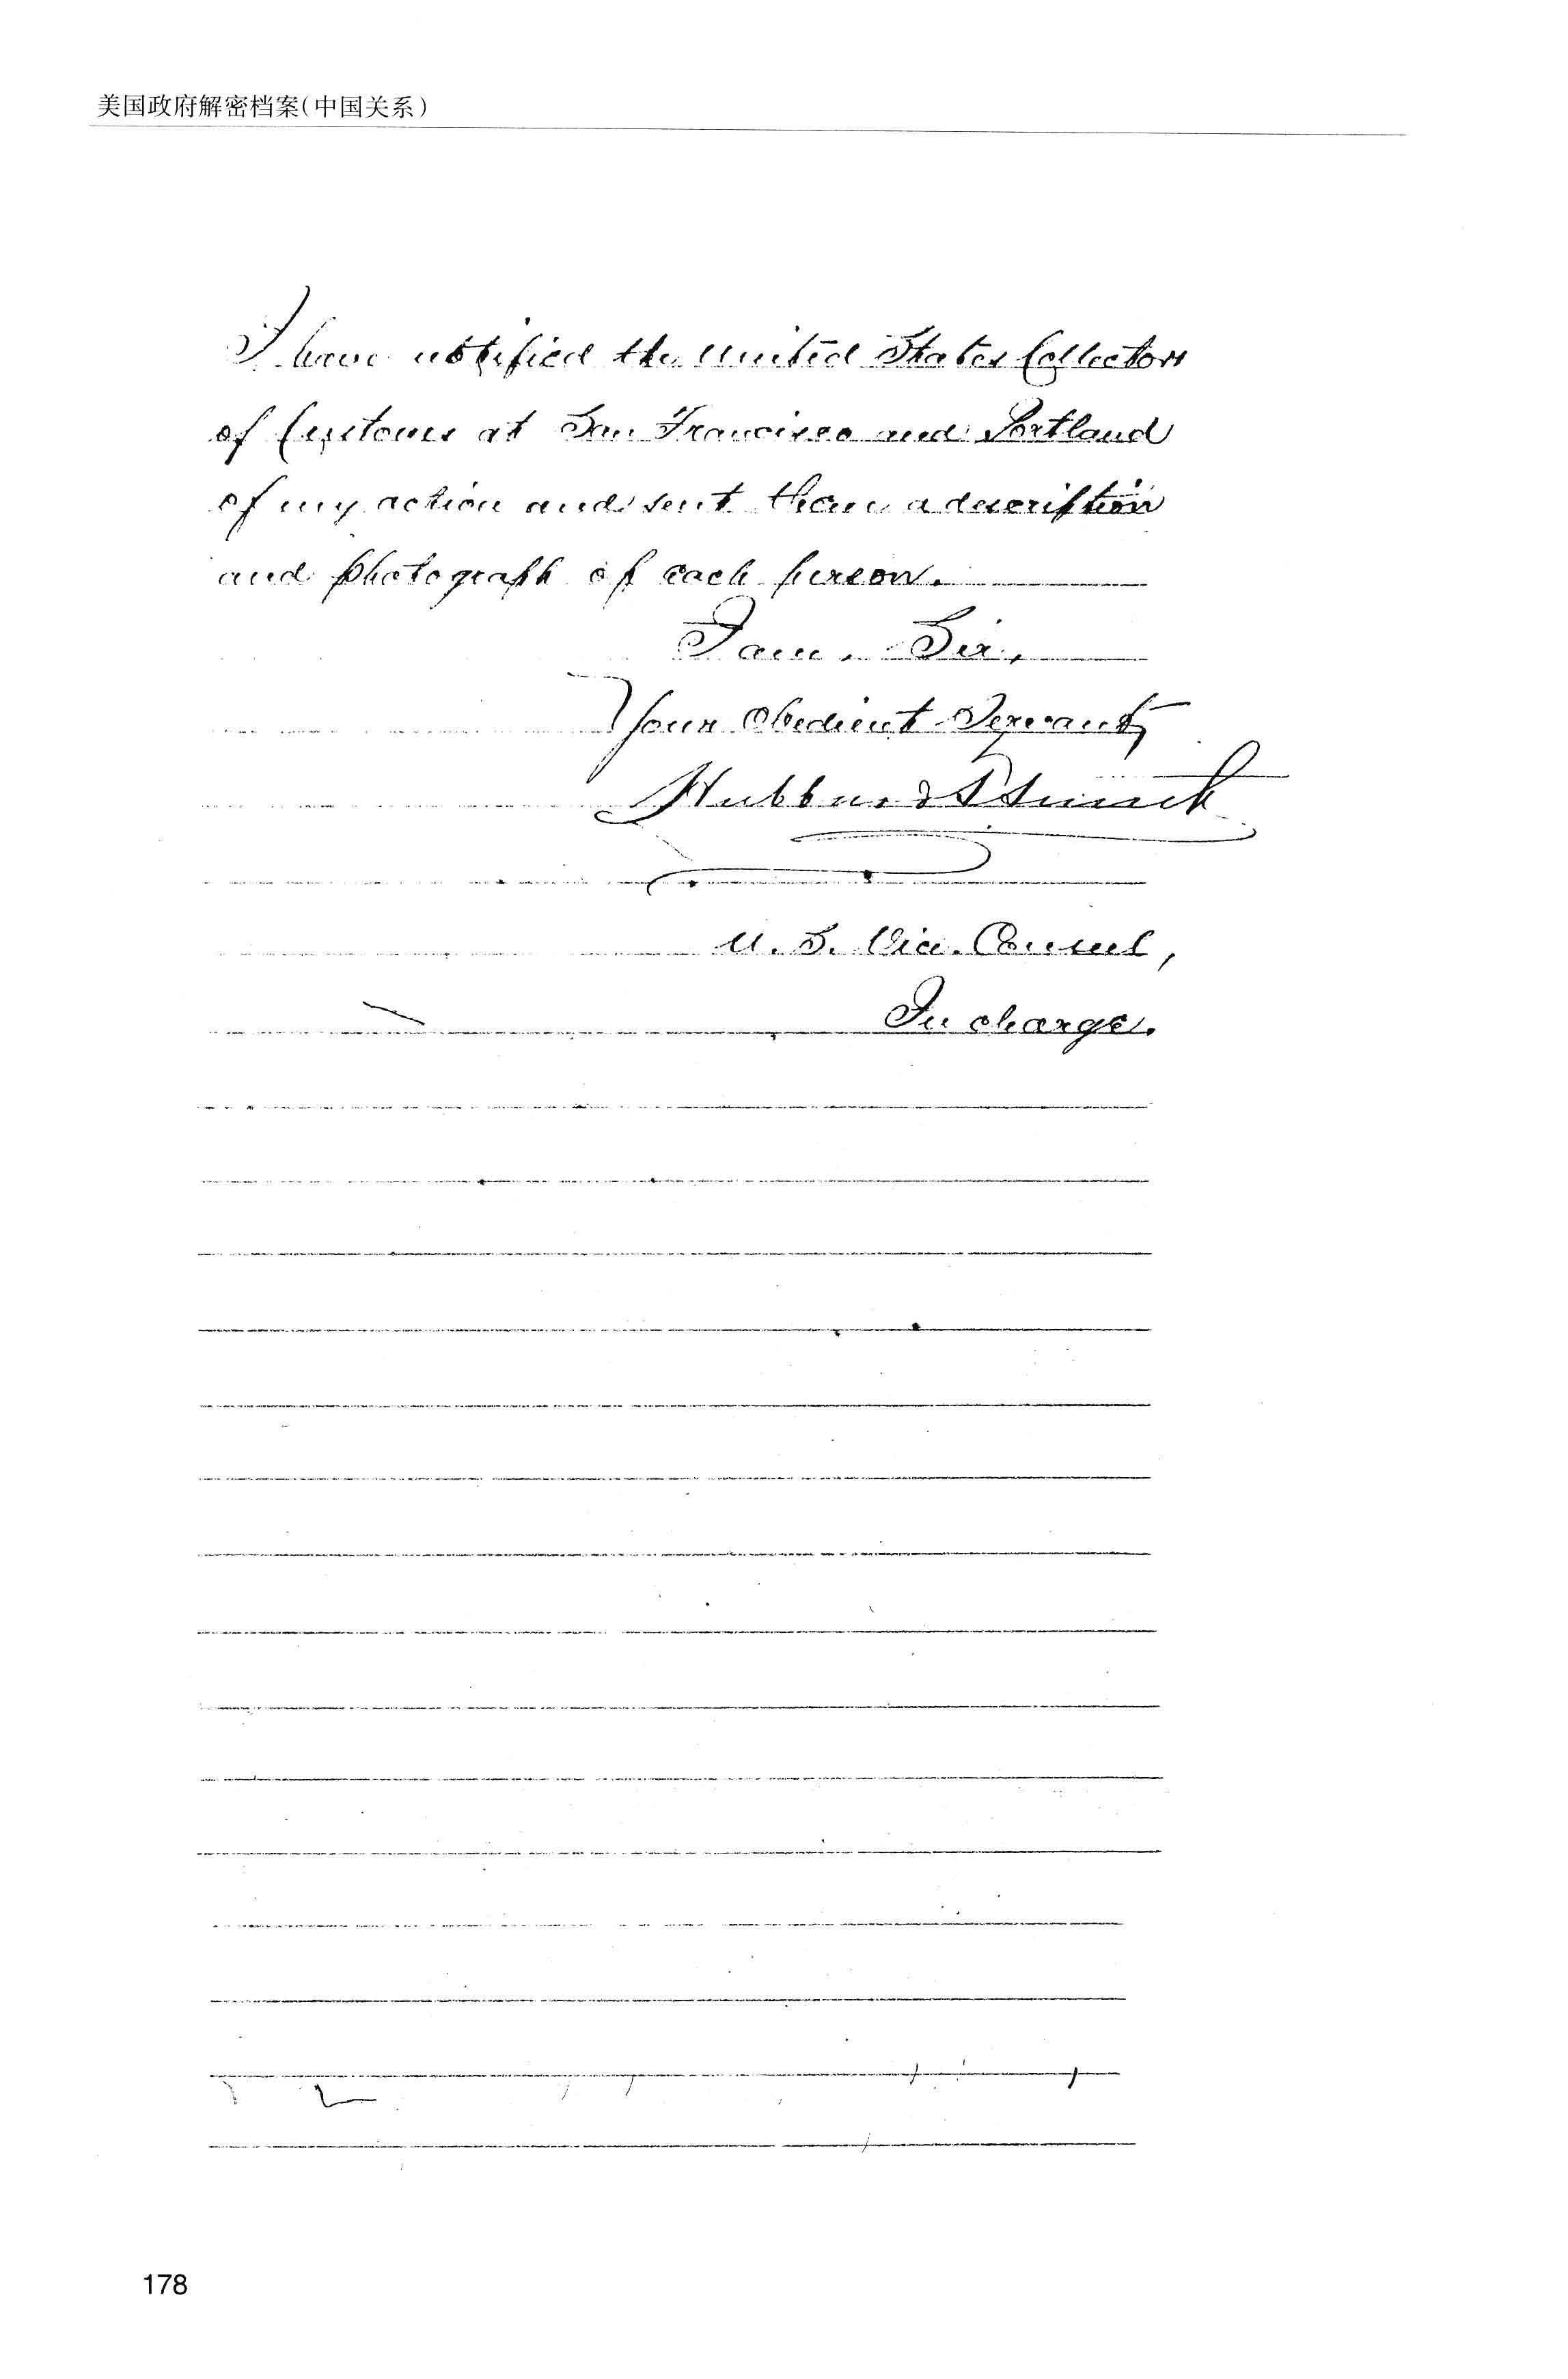 美国政府解密档案(中国关系)
I have notified the United States Collectors
of Customs at San Francisco and Portland
of my action and sent them a description
and photograph of each person.
I am, Sir,
Your Obedient Servant,
Hubbard T. Smith
U. S. Vice Consul,
In charge.
178